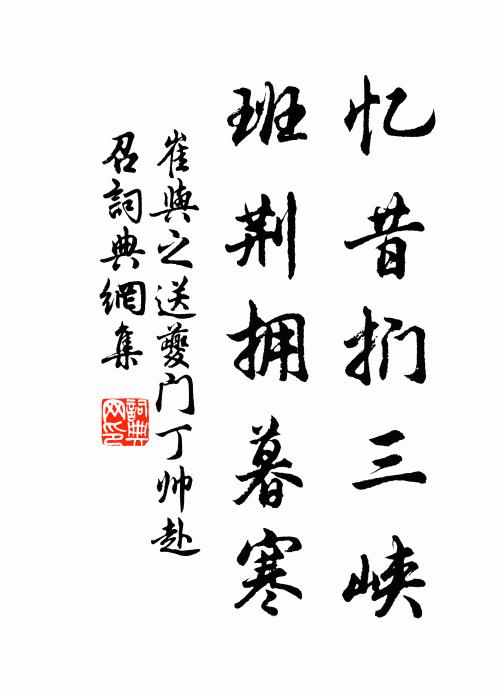 忆昔扪三峡
班荆拥暮寒
崔與之送夔门丁帅赴
召詞典網集
詞典网印